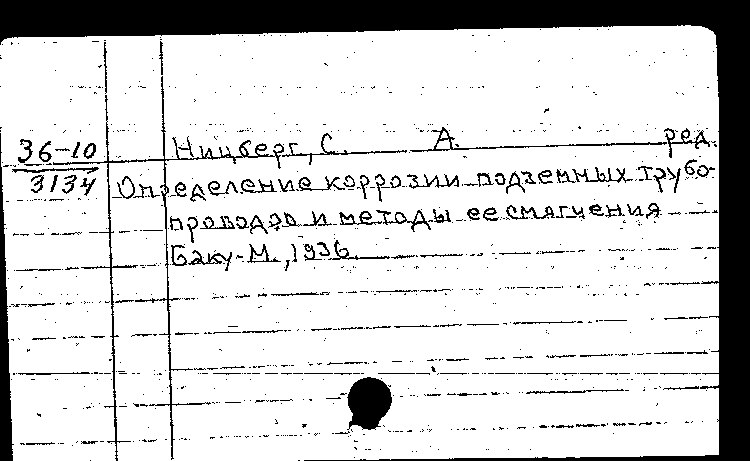 36-10
3134
Ницберг, С. А. ред.
Определение коррозии подземных трубо-
проводов и методы ее смягчения
Баку-М., 1936.